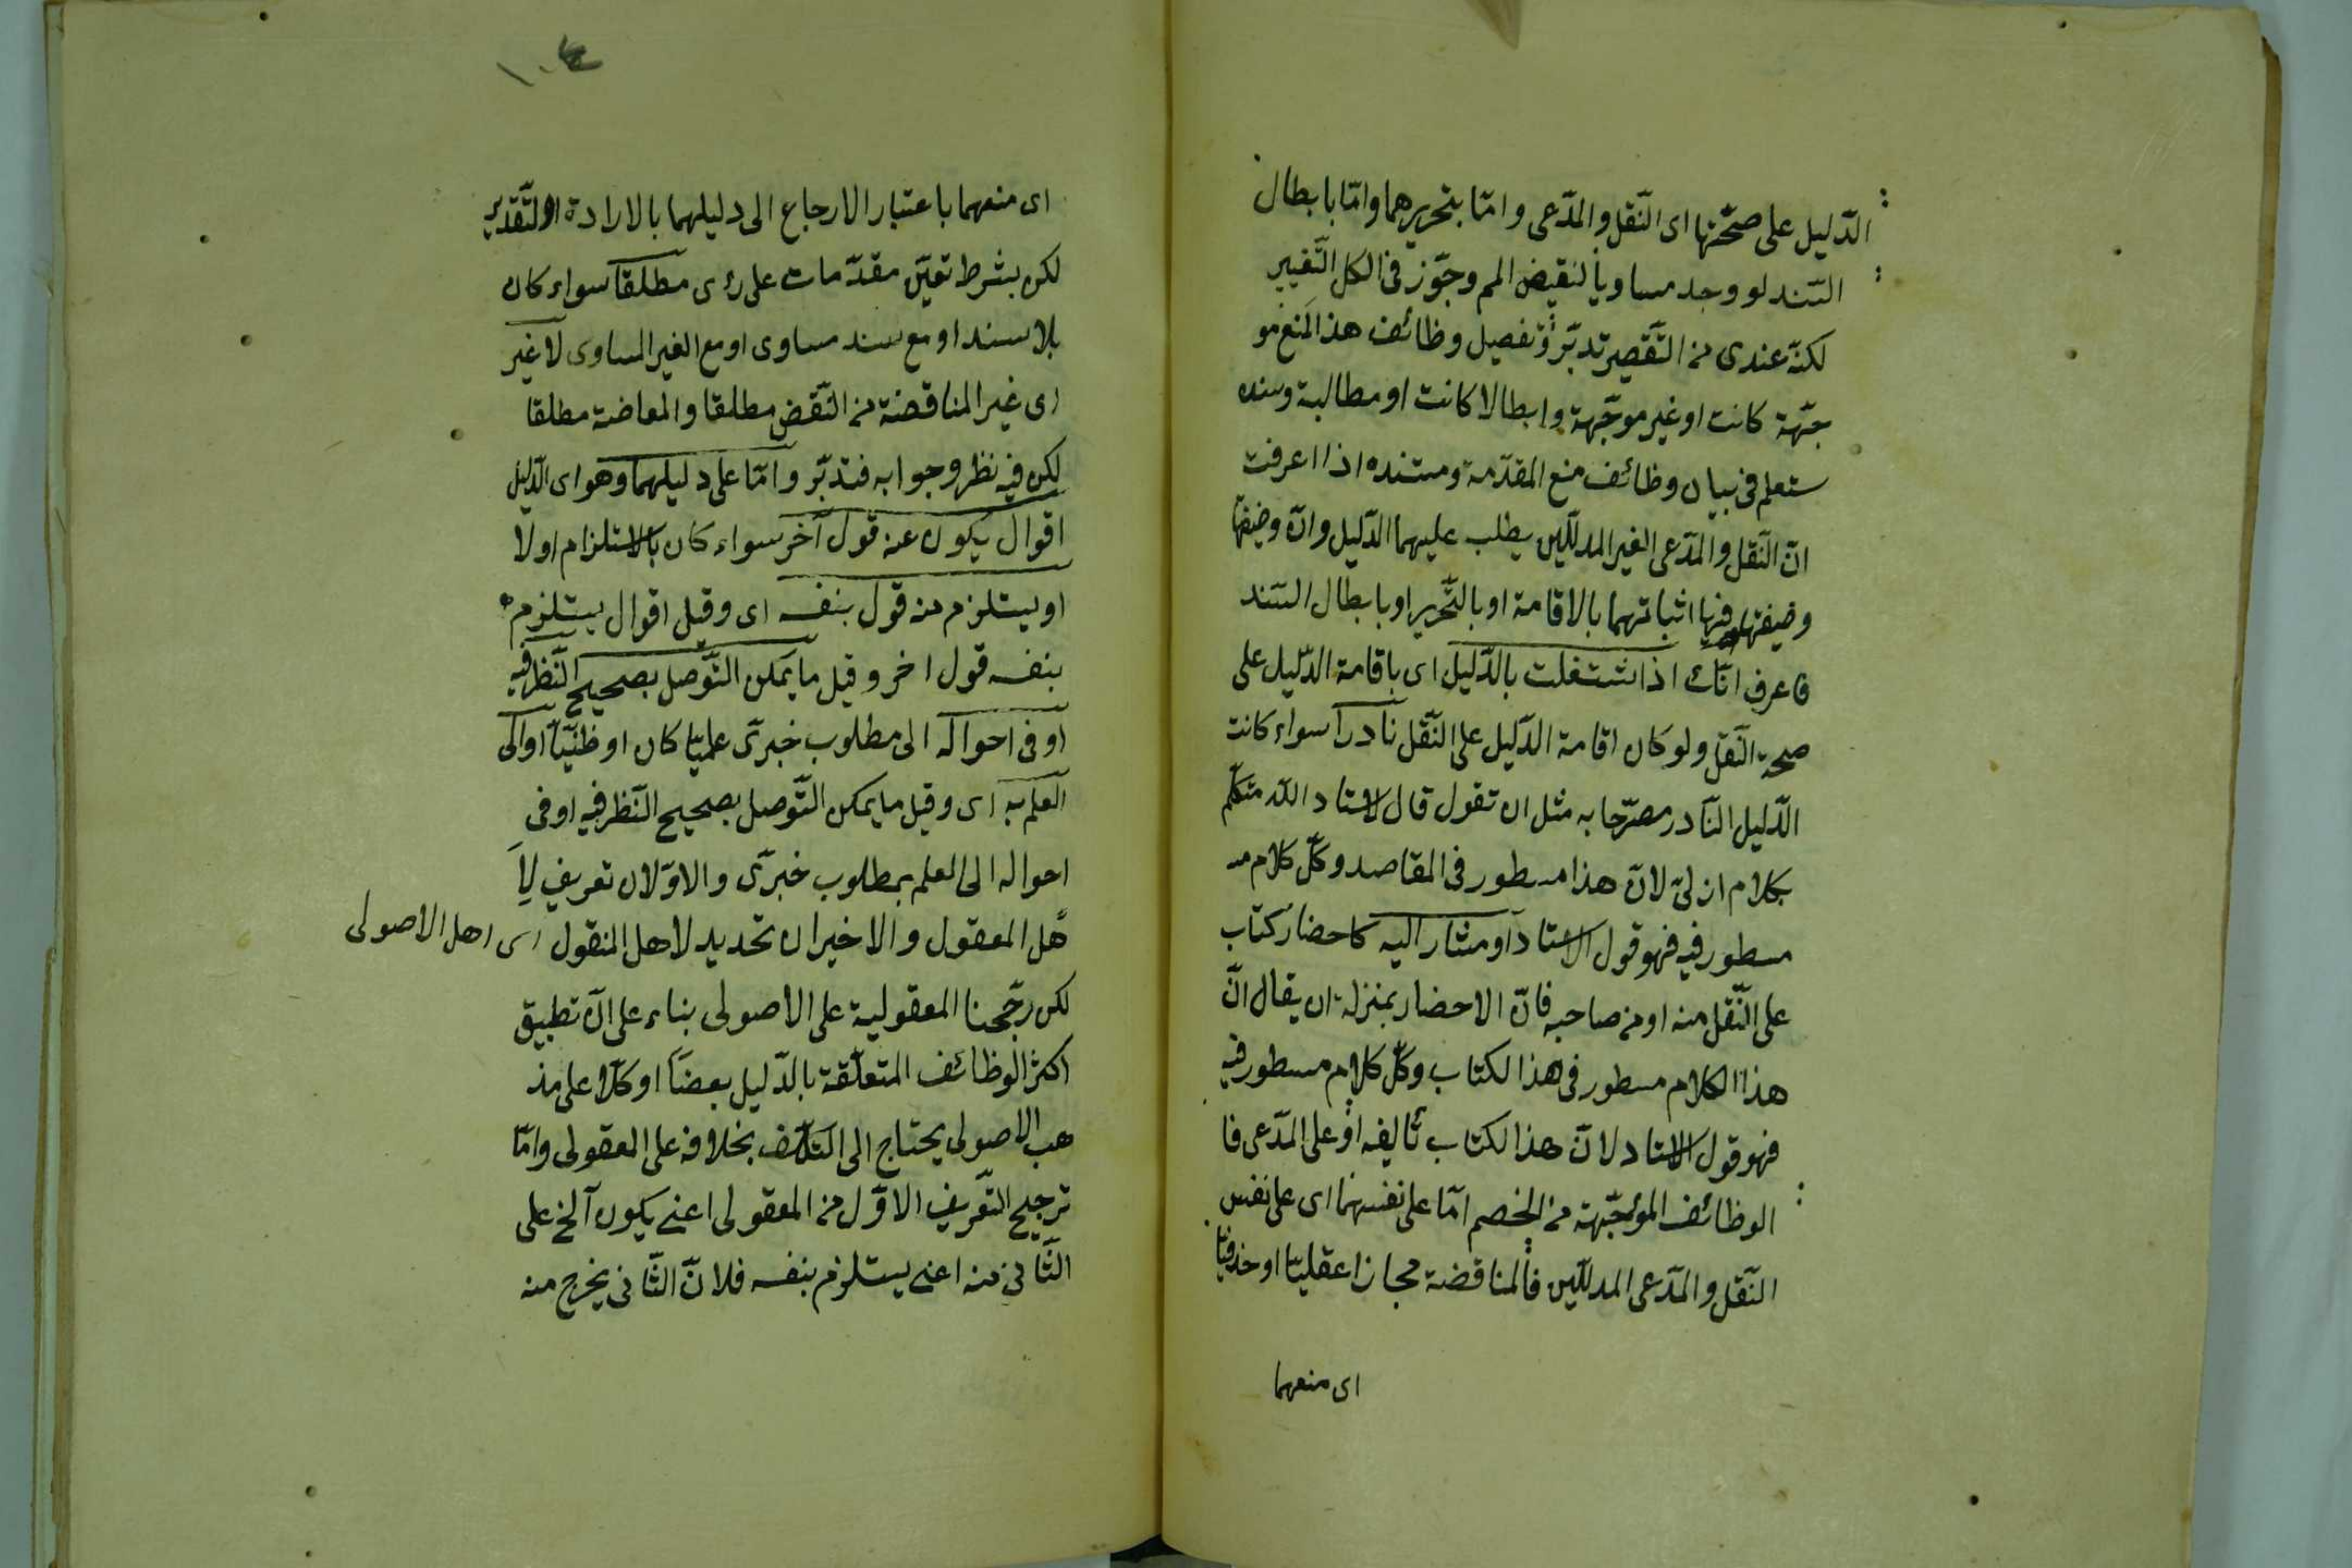 الدّليل على صحّتها اى النّقل والمدّعى وامّا بتحريرهما وامّا بابطال
السّند لو وجد مساويا لنقيض المم وجوّز فى الكل التّغيير
لكنّه عندى من التّقصير تدبّر وتفصيل وظائف هذا المنع مو
جّهة كانت او غير موجّهة وابطالا كانت او مطالبة وسنده
ستعلم فى بيان وظائف منع المقدّمة ومستنده اذا اعرفت
انّ النّقل والمدّعى الغير المدلّلين يطلب عليهما الدّليل وانّ وضيفتها
وضيفتها فيها اثباتهما بالاقامة او بالتّحرير او بابطال السّند
فاعرف انّك اذا شتغلت بالدّليل اى باقامة الدّليل على
صحة النّقل ولو كان اقامة الدّليل على النّقل نادرا سواء كانت
الدّليل النّادر مصرّحا به مثل ان تقول قال الاستاد اللّه متكلّم
بكلام ازلىّ لانّ هذا مسطور فى المقاصد وكلّ كلام مـ
مسطور فيه فهو قول الاستاد او مشار اليه كاحضار كتاب
على النّقل منه او من صاحبه فانّ الاحضار بمنزلة ان يقال انّ
هذا الكلام مسطور فى هذا لكتاب وكلّ كلام مسطور فيه
فهو قول الاستاد لانّ هذا لكتاب تأليفه او على المدّعى فا
الوظائف الموّجّهة من الخصم امّا على نفسهما اى على نفس
النّقل والمدّعى المدلّلين فالمناقضة مجازا عقليّا او حذفيّا
اى منعهما
١٠٤
اى منعهما باعتبار الارجاع الى دليلهما بالارادة او التّقدير
لكن بشرط تعيّن مقدّمات على رءى مطلقا سواء كان
بلا سند او مع سند مساوى او مع الغير المساوى لا غير
اى غير المناقضة من النّقض مطلقا والمعاضة مطلقا
لكن فيه نظر وجوابه فتدبّر وامّا على دليلهما وهو اى الدّليل
اقوال يكون عنه قول آخر سواء كان بالاستلزام اولا
او يستلزم منه قول بنفسه اى وقيل اقوال يستلزم
بنفسه قول اخر وقيل ما يمكن التّوصل بصحيح النّظر فيه
او فى احواله الى مطلوب خبرىّ علميّا كان او ظنّيّا او الى
العلم به اى وقيل ما يمكن التّوصل بصحيح النّظر فيه او فى
احواله الى العلم بمطلوب خبرىّ والاوّلان تعريف لا
هل المعقول والاخيران تحديد لاهل المنقول اى اهل الاصولى
لكن رجّحنا المعقولية على الاصولى بناء على انّ تطبيق
اكثر الوظائف المتعلّقة بالدّليل بعضا او كلّا على مذ
هب الاصولى يحتاج الى التكلّف بخلافه على المعقولى وامّا
ترجيح التّعريف الاوّل من المعقولى اعنى يكون آلخ على
الثّانى منه اعنى يستلزم بنفسه فلانّ الثّانى يخرج منه